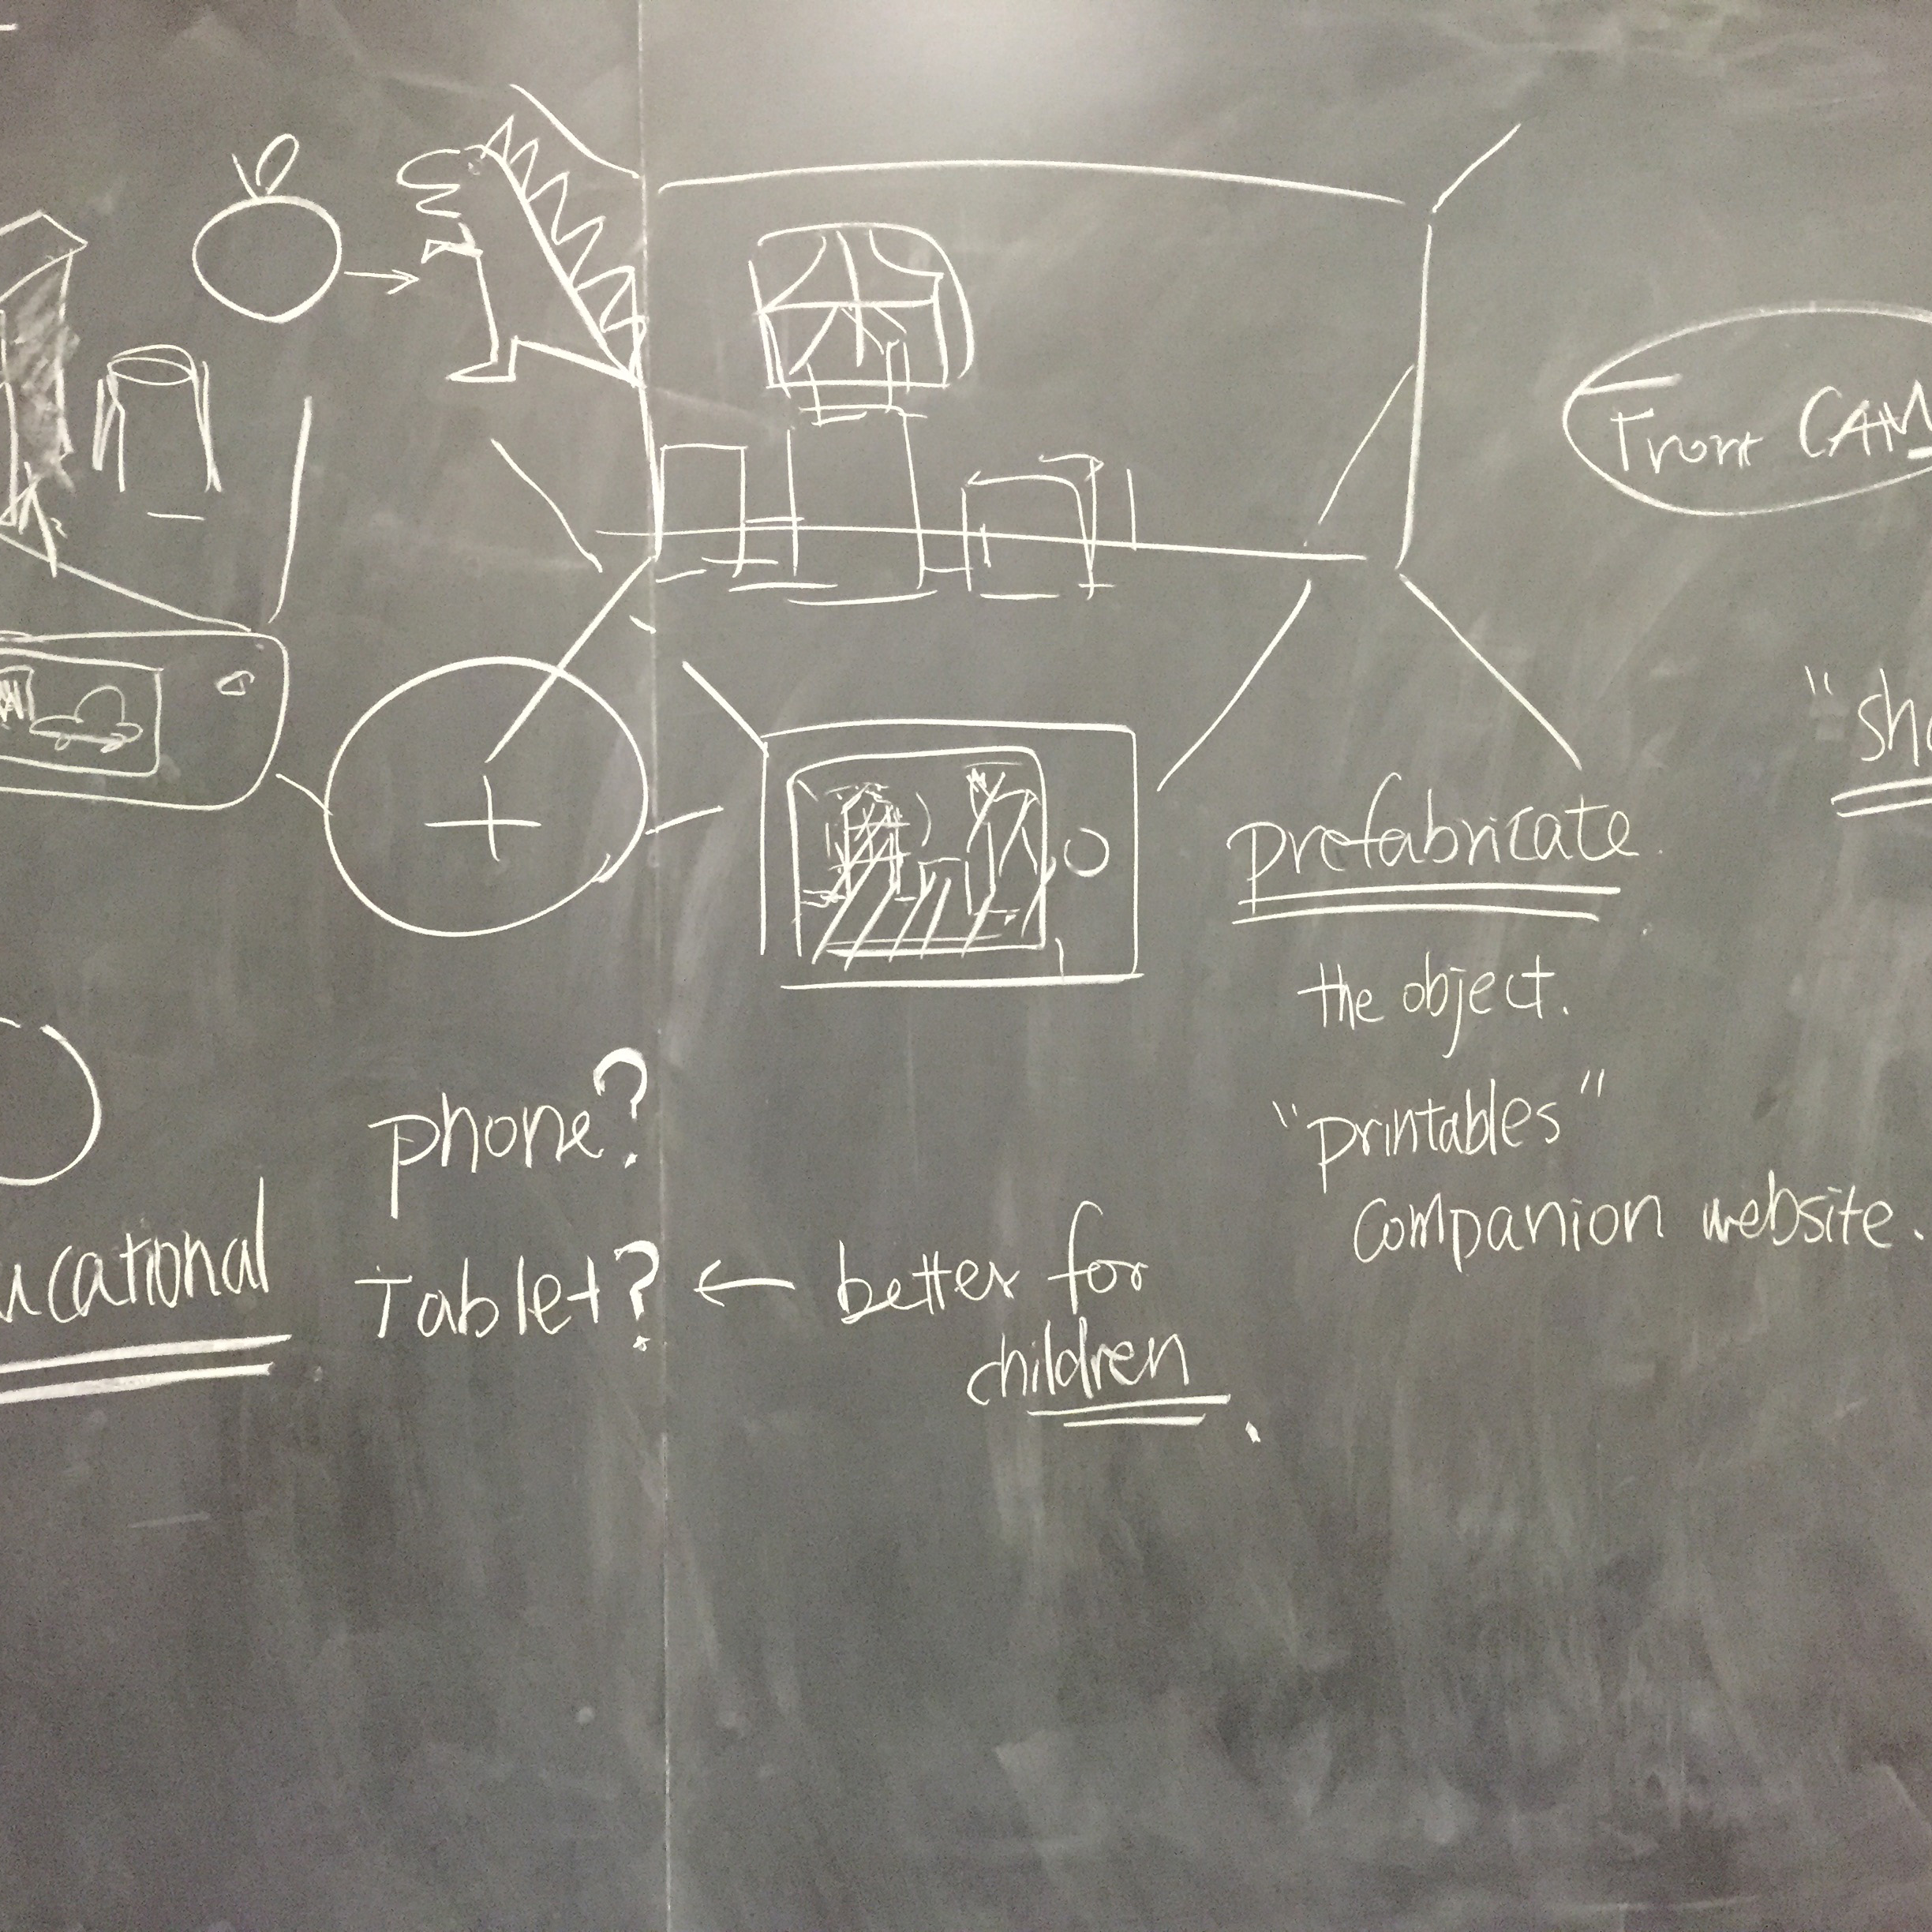 Front CAM
"sh
prefabricate
the object.
phone?
"printables"
companion website.
ucational
Tablet? ← better for
children.